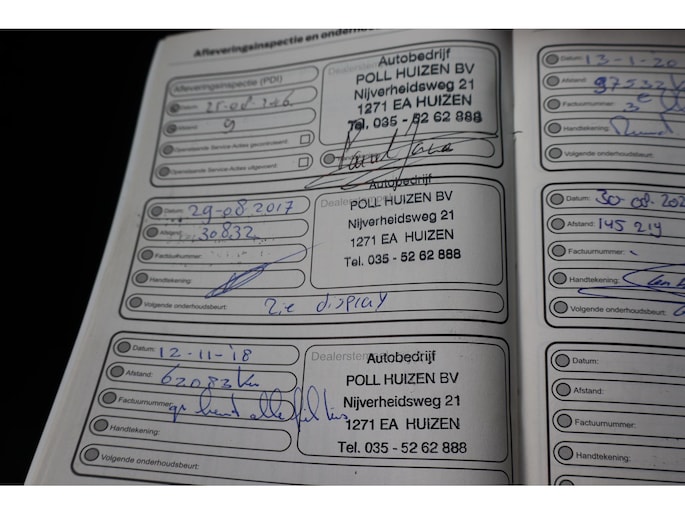 Afleveringsinspectie en onderhou
Afleveringsinspectie (PDI)
Datum:
Afstand: 9
Openstaande Service-Acties gecontroleerd:
Openstaande Service-Acties uitgevoerd:
Dealerstem
Autobedrijf
POLL HUIZEN BV
Nijverheidsweg 21
1271 EA HUIZEN
Tel. 035 - 52 62 888
Datum: 29-08-2017
Afstand: 30832
Factuurnummer:
Handtekening:
Volgende onderhoudsbeurt: zie display
Autobedrijf
POLL HUIZEN BV
Nijverheidsweg 21
1271 EA HUIZEN
Tel. 035 - 52 62 888
Datum: 12-11-'18
Afstand: 62083 km
Factuurnummer:
Handtekening:
Volgende onderhoudsbeurt:
Dealerstem
Autobedrijf
POLL HUIZEN BV
Nijverheidsweg 21
1271 EA HUIZEN
Tel. 035 - 52 62 888
Datum: 13-1-20
Afstand: 97532
Factuurnummer:
Handtekening:
Volgende onderhoudsbeurt:
Datum: 30-08-202
Afstand: 145 219
Factuurnummer:
Handtekening:
Volgende onderhoudsbeurt:
Datum:
Afstand:
Factuurnummer:
Handtekening:
Volgende onderhoudsbeurt: